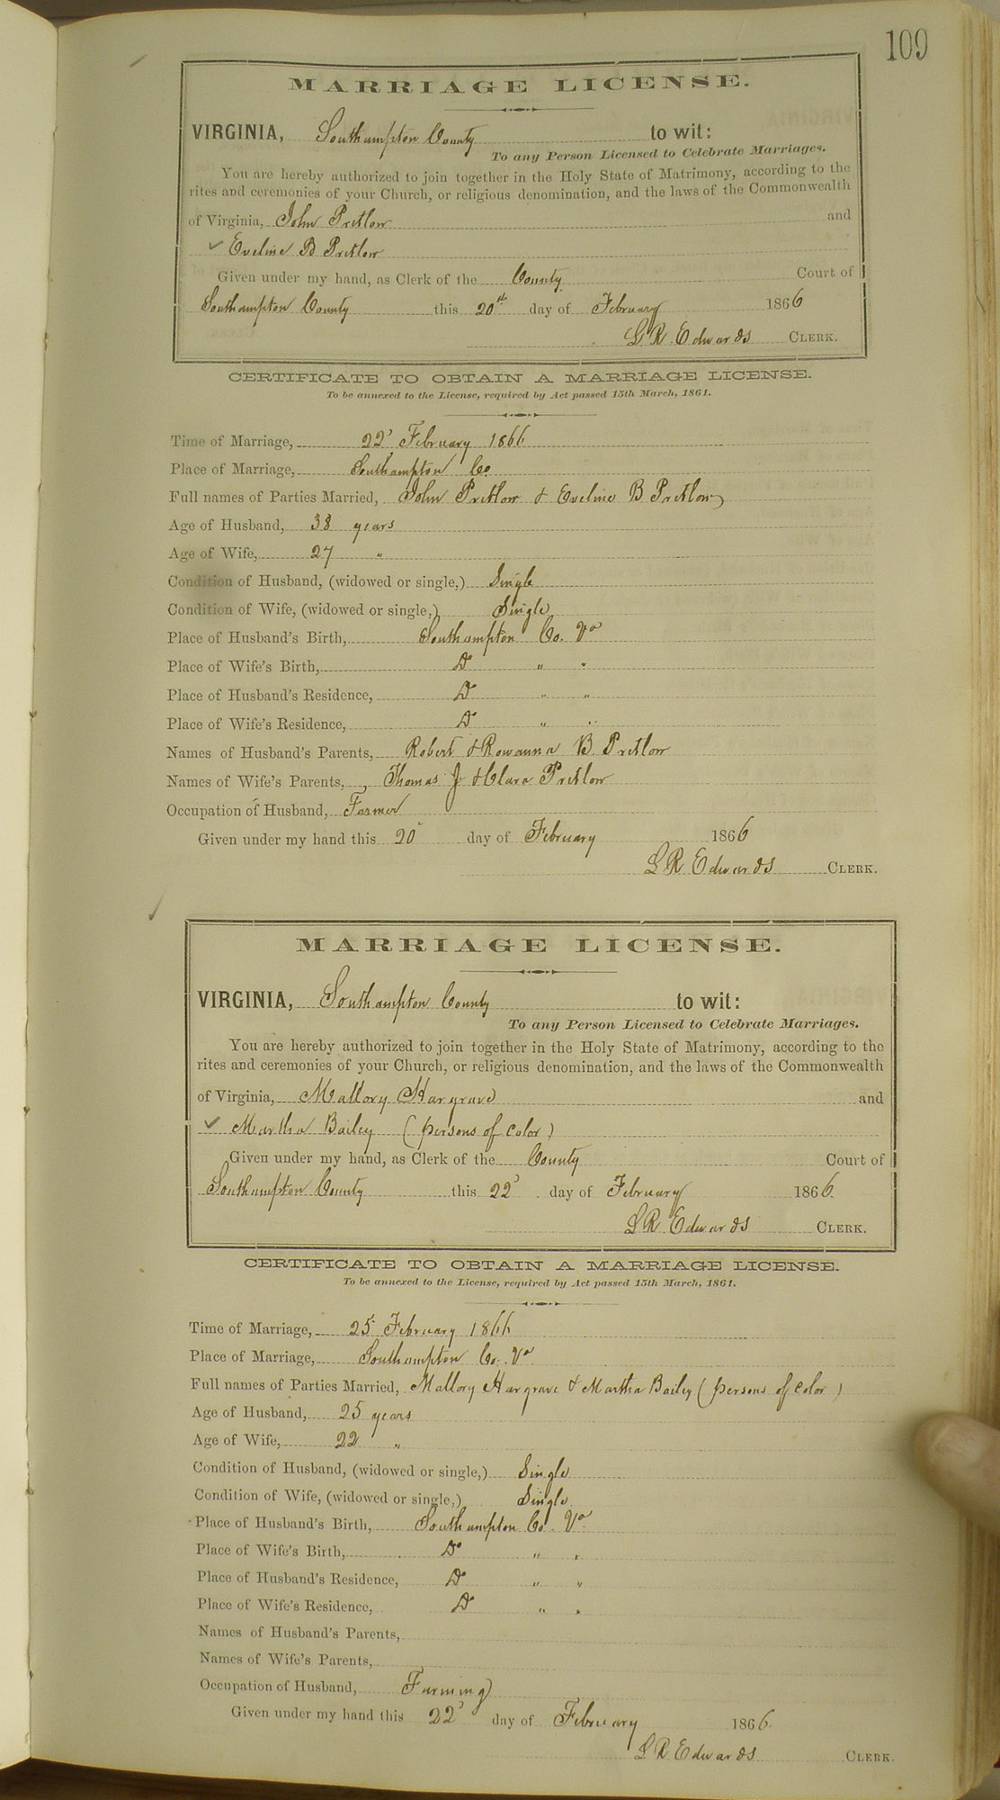 109
MARRIAGE LICENSE.
VIRGINIA, Southampton County to wit:
To any Person Licensed to Celebrate Marriages.
You are hereby authorized to join together in the Holy State of Matrimony, according to the
rites and ceremonies of your Church, or religious denomination, and the laws of the Commonwealth
of Virginia, John Pretlow and
✓ Eveline B Pretlow
Given under my hand, as Clerk of the County Court of
Southampton County this 20th day of February 1866
L R Edwards CLERK.
CERTIFICATE TO OBTAIN A MARRIAGE LICENSE.
To be annexed to the License, required by Act passed 15th March, 1861.
Time of Marriage, 22' February 1866
Place of Marriage, Southampton Co.
Full names of Parties Married, John Pretlow & Eveline B Pretlow
Age of Husband, 38 years
Age of Wife, 27 "
Condition of Husband, (widowed or single,) Single
Condition of Wife, (widowed or single,) Single
Place of Husband's Birth, Southampton Co. Va
Place of Wife's Birth, Do " "
Place of Husband's Residence, Do " "
Place of Wife's Residence, Do " "
Names of Husband's Parents, Robert & Rowanna B Pretlow
Names of Wife's Parents, Thomas J & Clara Pretlow
Occupation of Husband, Farmer
Given under my hand this 20 day of February 1866
L R Edwards CLERK.
MARRIAGE LICENSE.
VIRGINIA, Southampton County to wit:
To any Person Licensed to Celebrate Marriages.
You are hereby authorized to join together in the Holy State of Matrimony, according to the
rites and ceremonies of your Church, or religious denomination, and the laws of the Commonwealth
of Virginia, Mallory Hargrave and
✓ Martha Bailey (persons of color)
Given under my hand, as Clerk of the County Court of
Southampton County this 22' day of February 1866
L R Edwards CLERK.
CERTIFICATE TO OBTAIN A MARRIAGE LICENSE.
To be annexed to the License, required by Act passed 15th March, 1861.
Time of Marriage, 25' February 1866
Place of Marriage, Southampton Co. Va
Full names of Parties Married, Mallory Hargrave & Martha Bailey (persons of color)
Age of Husband, 25 years
Age of Wife, 22 "
Condition of Husband, (widowed or single,) Single
Condition of Wife, (widowed or single,) Single
Place of Husband's Birth, Southampton Co. Va
Place of Wife's Birth, Do " "
Place of Husband's Residence, Do " "
Place of Wife's Residence, Do " "
Names of Husband's Parents,
Names of Wife's Parents,
Occupation of Husband, Farming
Given under my hand this 22' day of February 1866
L R Edwards CLERK.